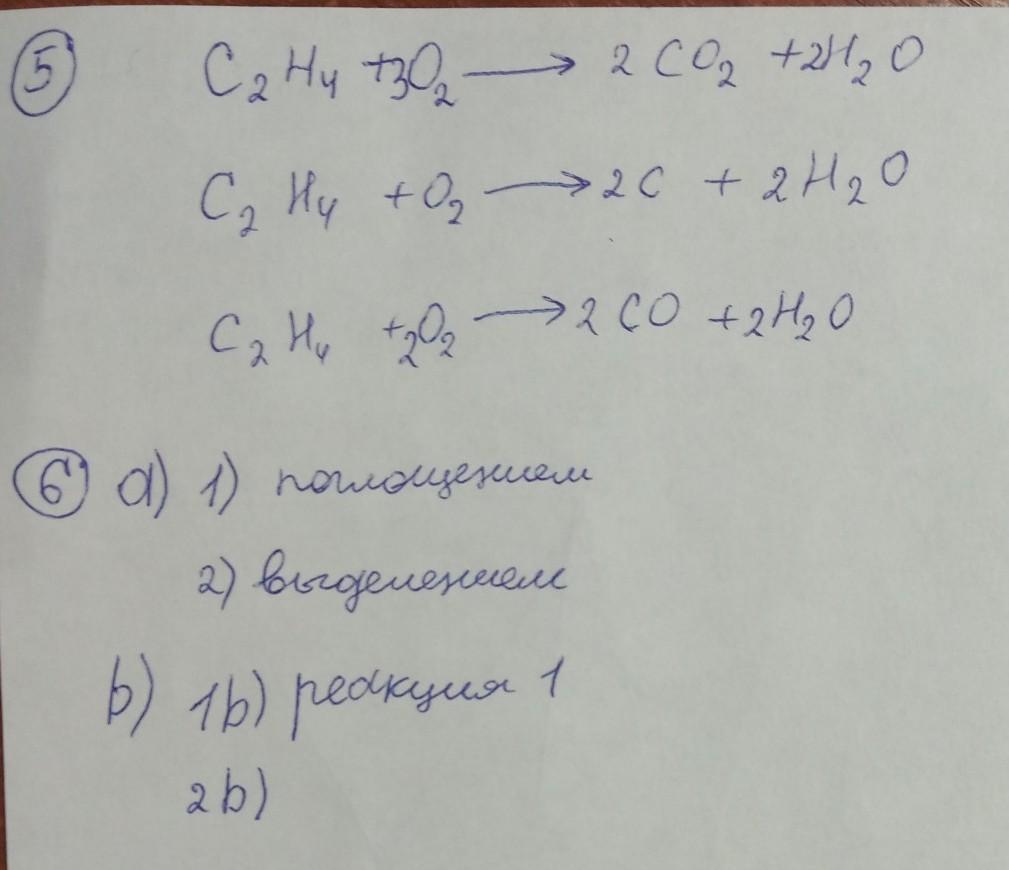 5 C₂H₄ +3O₂ → 2CO₂ +2H₂O
C₂H₄ +O₂ → 2C + 2H₂O
C₂H₄ +2O₂ → 2CO +2H₂O
6 a) 1) поглощением
2) выделением
b) 1b) реакция 1
2b)